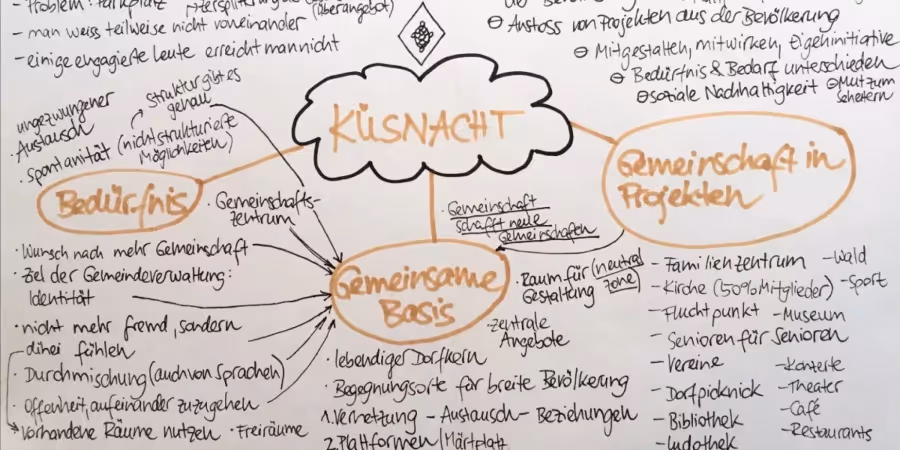 - Problem: Parkplatz
(überangebot)
- man weiss teilweise nicht voneinander
- einige engagierte Leute erreicht man nicht
Anstoss von Projekten aus der Bevölkerung
Mitgestalten, mitwirken, Eigeninitiative
Bedürfnis & Bedarf unterschieden
soziale Nachhaltigkeit
Mut zum
Scheitern
ungezwungener
Austausch
· Spontanität (nicht strukturierte
Möglichkeiten)
Struktur gibt es
genau
KÜSNACHT
Bedürfnis
Gemeinschaft in
Projekten
· Gemeinschafts-
zentrum
· Gemeinschaft
schafft neue
Gemeinschaften
· Wunsch nach mehr Gemeinschaft
· Ziel der Gemeindeverwaltung:
Identität
· nicht mehr fremd, sondern
dihei fühlen
· Durchmischung (auch von Sprachen)
· Offenheit, aufeinander zuzugehen
· Vorhandene Räume nutzen · Freiräume
Gemeinsame
Basis
· Raum für (neutral
Gestaltung zone)
· zentrale
Angebote
· lebendiger Dorfkern
· Begegnungsorte für breite Bevölkerung
1. Vernetzung - Austausch - Beziehungen
2. Plattformen / Märtplatz
- Familienzentrum
- Kirche (50% Mitglieder)
- Fluchtpunkt
- Senioren für Senioren
- Vereine
- Dorfpicknick
- Bibliothek
- Ludothek
- Wald
- Sport
- Museum
- Konzerte
- Theater
- Café
- Restaurants